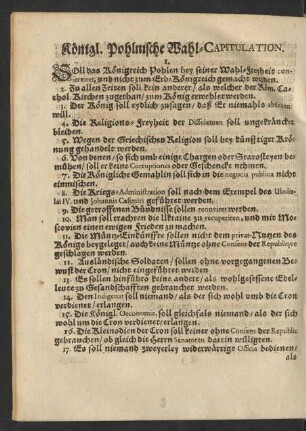 Königl. Pohlnische Wahl-CAPITULATION.
1.
SOll das Königreich Pohlen bey seiner Wahl-Freyheit con-
serviret, und nicht zum Erb-Königreich gemacht werden.
2. Zu allen Zeiten soll kein anderer/ als welcher der Röm. Ca-
thol. Kirchen zugethan/ zum König erwehlet werden.
3. Der König soll eydlich zusagen/ daß Er niemahls abdiciren
will.
4. Die Religions-Freyheit der Dissidenten soll ungekränckt
bleiben.
5. Wegen der Griechischen Religion soll bey künfftiger Krö-
nung gehandelt werden.
6. Von denen/ so sich umb einige Chargen oder Starosteyen be-
mühen/ soll er keine Corruptiones oder Geschencke nehmen.
7. Die Königliche Gemahlin soll sich in die negotia publica nicht
einmischen.
8. Die Kriegs-Administration soll nach dem Exempel des Uladis-
lai IV. und Johannis Casimiri geführet werden.
9. Die getroffenen Bündnisse sollen renoviret werden.
10. Man soll trachten die Ukraine zu recuperiren, und mit Mo-
scovien einen ewigen Frieden zu machen.
11. Die Müntz-Einkünffte sollen nicht dem privat-Nutzen des
Königs beygeleget/ auch keine Müntze ohne Consens der Republique
geschlagen werden.
12. Ausländische Soldaten/ sollen ohne vorgegangenen Be-
wust der Cron/ nicht eingeführet werden.
13. Es sollen hinführo keine andere/ als wohlgesessene Edel-
leute zu Gesandschafften gebrauchet werden.
14. Den Indigenat soll niemand/ als der sich wohl umb die Cron
verdienet/ erlangen.
15. Die Königl. Oeconomie, soll gleichfals niemand/ als der sich
wohl um die Cron verdienet/ erlangen.
16. Die Kleinodien der Cron soll keiner ohne Consens der Republic
gebrauchen/ ob gleich die Herrn Senatoren darein willigten.
17. Es soll niemand zweyerley widerwärtige Officia bedienen/
als